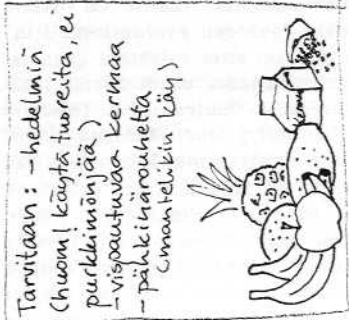 Tarvitaan: -hedelmiä
(huom! käytä tuoreita, ei
purkkimönjää)
-vispautuvaa kermaa
-pähkinärouhetta
(mantelitkin käy)